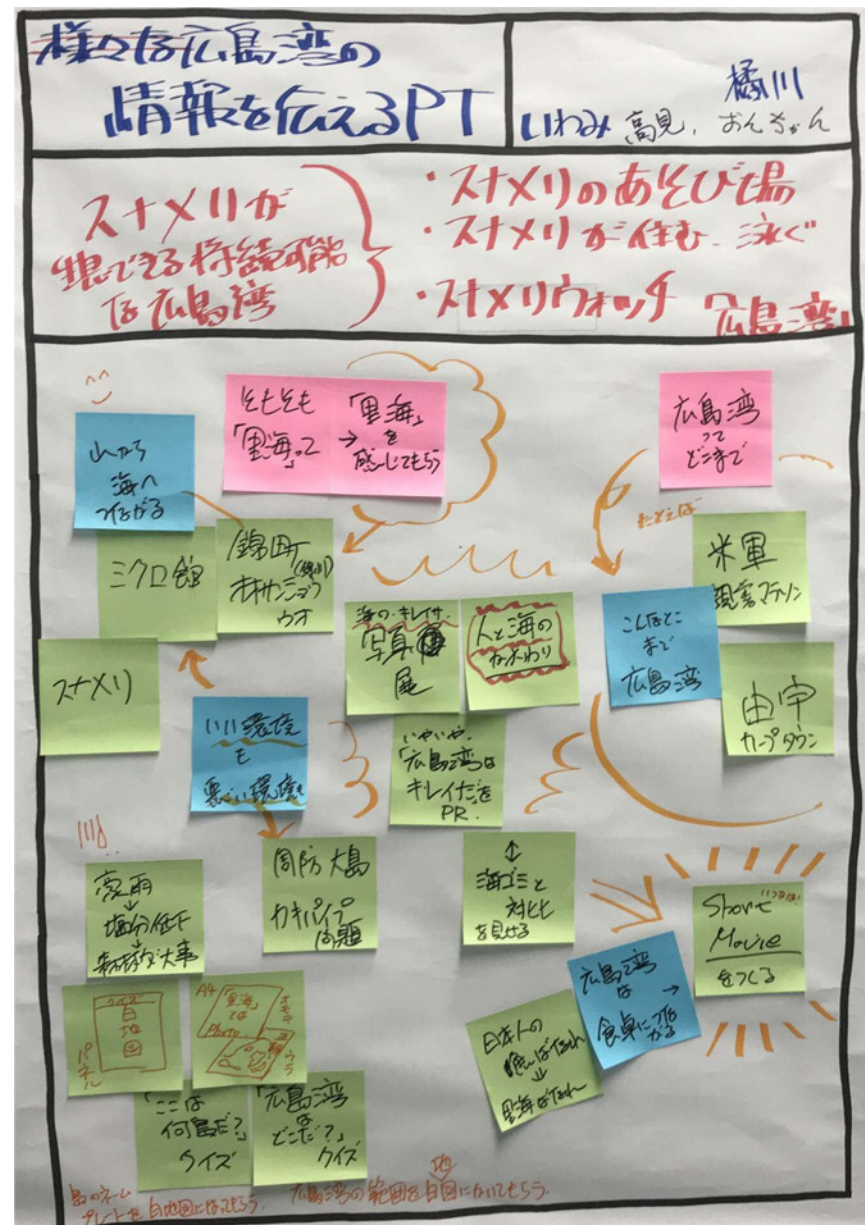 様々な広島湾の
情報を伝えるPT
橘川
いわみ 高見、おんちゃん
スナメリが
できる持続可能
な広島湾
・スナメリのあそび場
・スナメリが住む、泳ぐ
・スナメリウォッチ「広島湾」
山から
海へ
つながる
そもそも
「里海」って
「里海」
→を
感じてもらう
広島湾
って
どこまで
たとえば
ミクロ館
錦町
オオサンショウ
ウオ
スナメリ
海の・キレイサ
写真
展
人と海の
かかわり
こんなとこ
まで
広島湾
米軍
マラソン
由宇
カープタウン
いい環境
も
悪い環境も
いやいや、
「広島湾は
キレイだ」を
PR.
豪雨
↓
塩分低下
↓
森林が大事
周防大島
カキパイプ
問題
↕
海ゴミと
対比
を見せる
Short
Movie
をつくる
広島湾
は →
食卓につな
がる
日本人の
魚ばなれ
⇓
里海ばなれ
クイズ
白
地
図
パネル
A4
「里海」
とは
Photo
オモテ
ウラ
「ここは
何島だ?」
クイズ
「広島湾
は
どこだ?」
クイズ
島のネーム
プレートを白地図にはってもらう.
広島湾の範囲を白地図にかいてもらう.